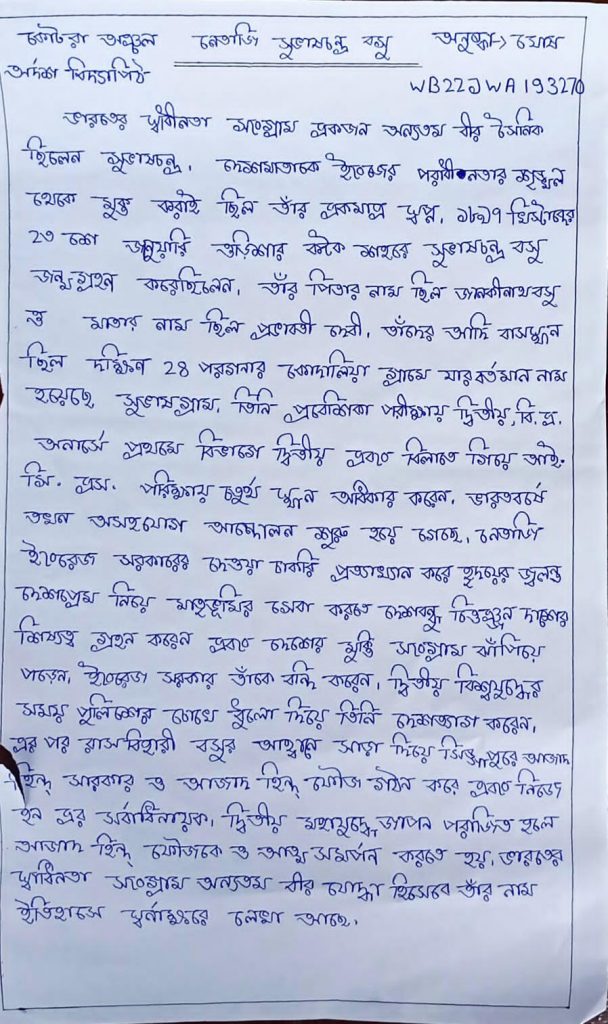 কোটরা অঞ্চল নেতাজি সুভাষচন্দ্র বসু অনুষ্কা ঘোষ
আর্দশ বিদ্যাপিঠ
WB22JWA193270
ভারতের স্বাধীনতা সংগ্রাম একজন অন্যতম বীর সৈনিক
ছিলেন সুভাষচন্দ্র, দেশমাতাকে ইংরেজের পরাধীনতার শৃঙ্খল
থেকে মুক্ত করাই ছিল তাঁর একমাত্র স্বপ্ন, ১৮৯৭ খ্রিস্টাব্দের
২৩ শে জানুয়ারি ওড়িশার কটক শহরে সুভাষচন্দ্র বসু
জন্মগ্রহন করেছিলেন, তাঁর পিতার নাম ছিল জানকীনাথ বসু
ও মাতার নাম ছিল প্রভাবতী দেবী, তাঁদের আদি বাসস্থান
ছিল দক্ষিন 24 পরগনার কোদালিয়া গ্রামে যার বর্তমান নাম
হয়েছে সুভাষগ্রাম, তিনি প্রবেশিকা পরীক্ষায় দ্বিতীয়, বি.এ.
অনার্সে প্রথমে বিভাগে দ্বিতীয় এবং বিলাতে গিয়ে আই.
সি. এস. পরিক্ষায় চতুর্থ স্থান অধিকার করেন, ভারতবর্ষে
তখন অসহযোগ আন্দোলন শুরু হয়ে গেছে, নেতাজি
ইংরেজ সরকারের দেওয়া চাকরি প্রত্যাখ্যান করে হৃদয়ের জ্বলন্ত
দেশপ্রেম নিয়ে মাতৃভূমির সেবা করতে দেশবন্ধু চিত্তরঞ্জন দাশের
শিষ্যত্ব গ্রহন করেন এবং দেশের মুক্তি সংগ্রাম ঝাঁপিয়ে
পড়েন, ইংরেজ সরকার তাঁকে বন্দি করেন, দ্বিতীয় বিশ্বযুদ্ধের
সময় পুলিশের চোখে ধুলো দিয়ে তিনি দেশত্যাগ করেন,
এর পর রাসবিহারী বসুর আহ্বানে সাড়া দিয়ে সিঙ্গাপুরে আজাদ
হিন্দ সরকার ও আজাদ হিন্দ্ ফৌজ গঠন করে এবং নিজে
হন এর সর্বাধিনায়ক, দ্বিতীয় মহাযুদ্ধে জাপান পরাজিত হলে
আজাদ হিন্দ্ ফৌজকে ও আত্ম সমর্পন করতে হয়, ভারতের
স্বাধিনতা সংগ্রাম অন্যতম বীর যোদ্ধা হিসেবে তাঁর নাম
ইতিহাসে স্বর্নাক্ষরে লেখা আছে,